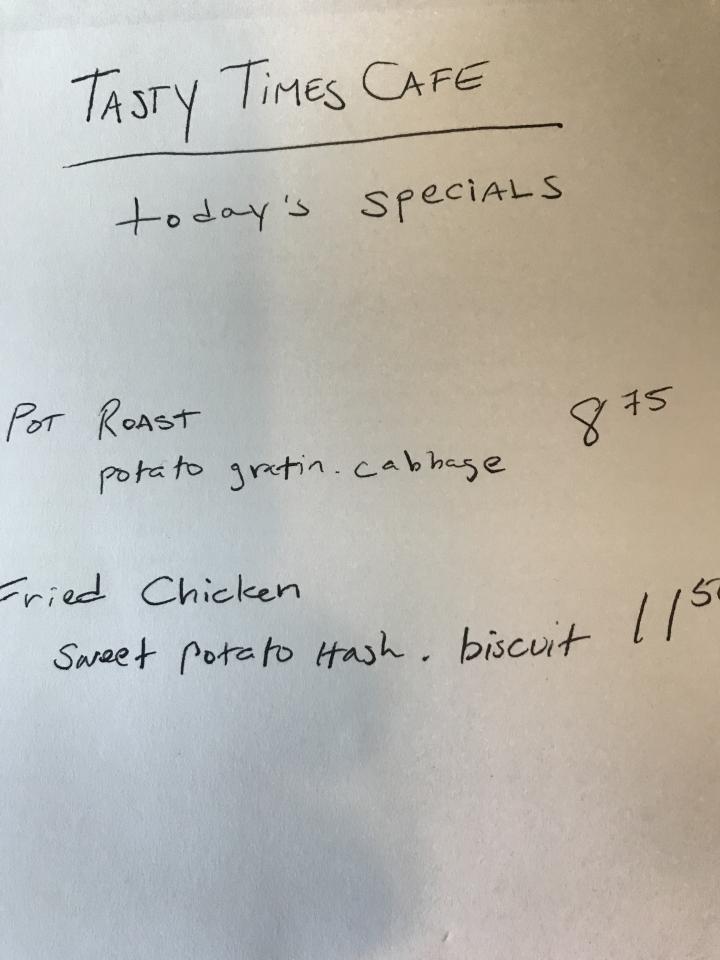 TASTY TIMES CAFE
today's specials
POT ROAST 8 75
potato gratin. cabbage
Fried Chicken
Sweet potato Hash. biscuit 11 50